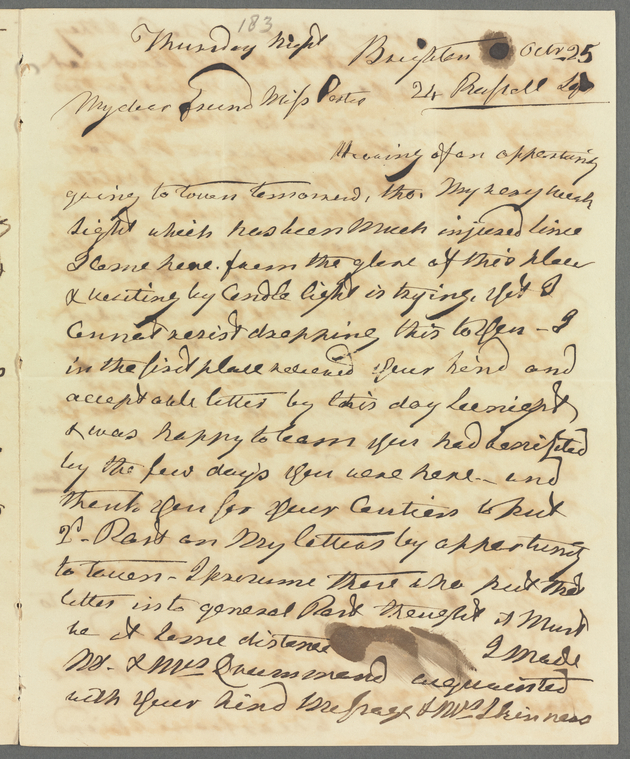 183
Thursday Night Brighton Octr 25
My dear Friend Miss Porter 24 Russell Sqr
Hearing of an opportunity
going to town tomorrow, tho. My very weak
sight which has been much injured since
I came here. from the glare of this place
& writing by Candle light is trying, Yet I
cannot resist dropping this to You - I
in the first place received your kind and
acceptable letter by this day sennight
& was happy to learn you had benefited
by the few days you were here - and
thank You for Your Caution to put
2d. Post on My letters by opportunity
to town - I presume those who put the
letter into general Post thought it Must
be at some distance I Made
Mr. & Mrs Drummond acquainted
with Your kind Message & Mrs Skinners